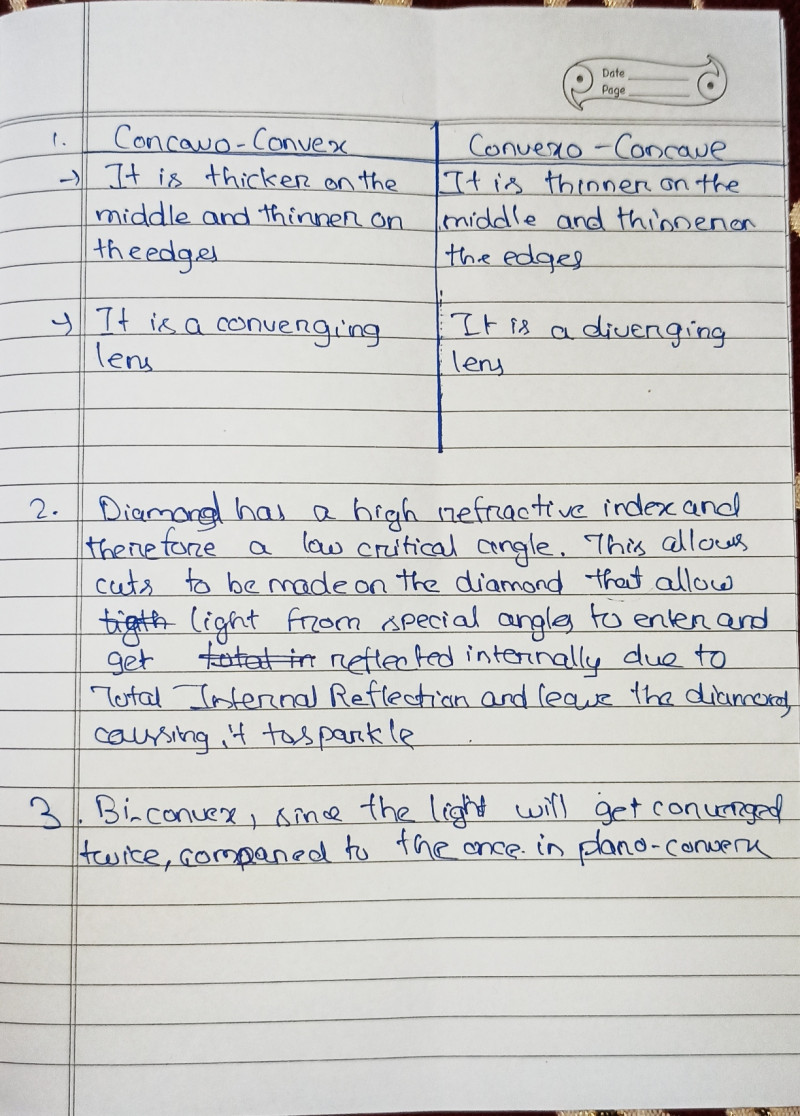 Date
Page
1. Concavo-Convex
Convexo-Concave
→ It is thicker on the
middle and thinner on
the edges
It is thinner on the
middle and thinner on
the edges
→ It is a converging
lens
It is a diverging
lens
2. Diamond has a high refractive index and
therefore a low critical angle. This allows
cuts to be made on the diamond that allow
light from special angles to enter and
get total in reflected internally due to
Total Internal Reflection and leave the diamond,
caussing it to sparkle
3. Bi-convex, since the light will get converged
twice, compared to the once in plano-convex